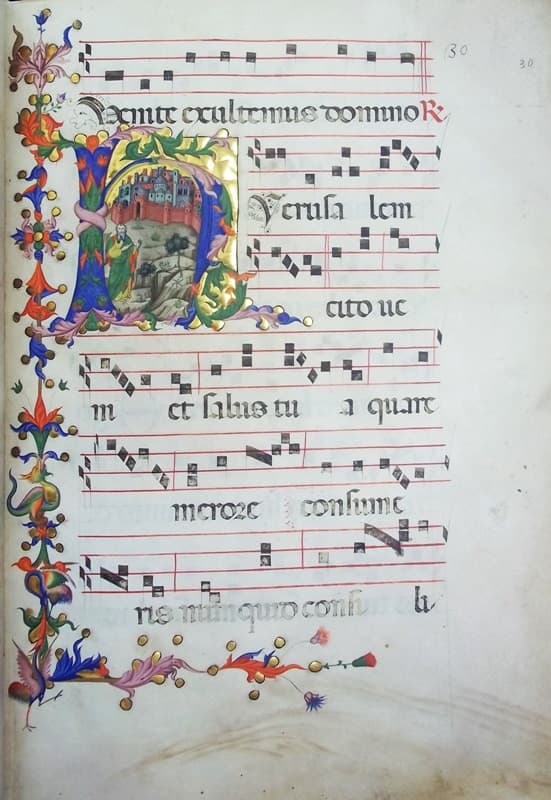 30 30
Venite exultemus domino R.
H Yerusa lem
cito ue
ni et salus tu a quare
merore consume
ris numquid consi li